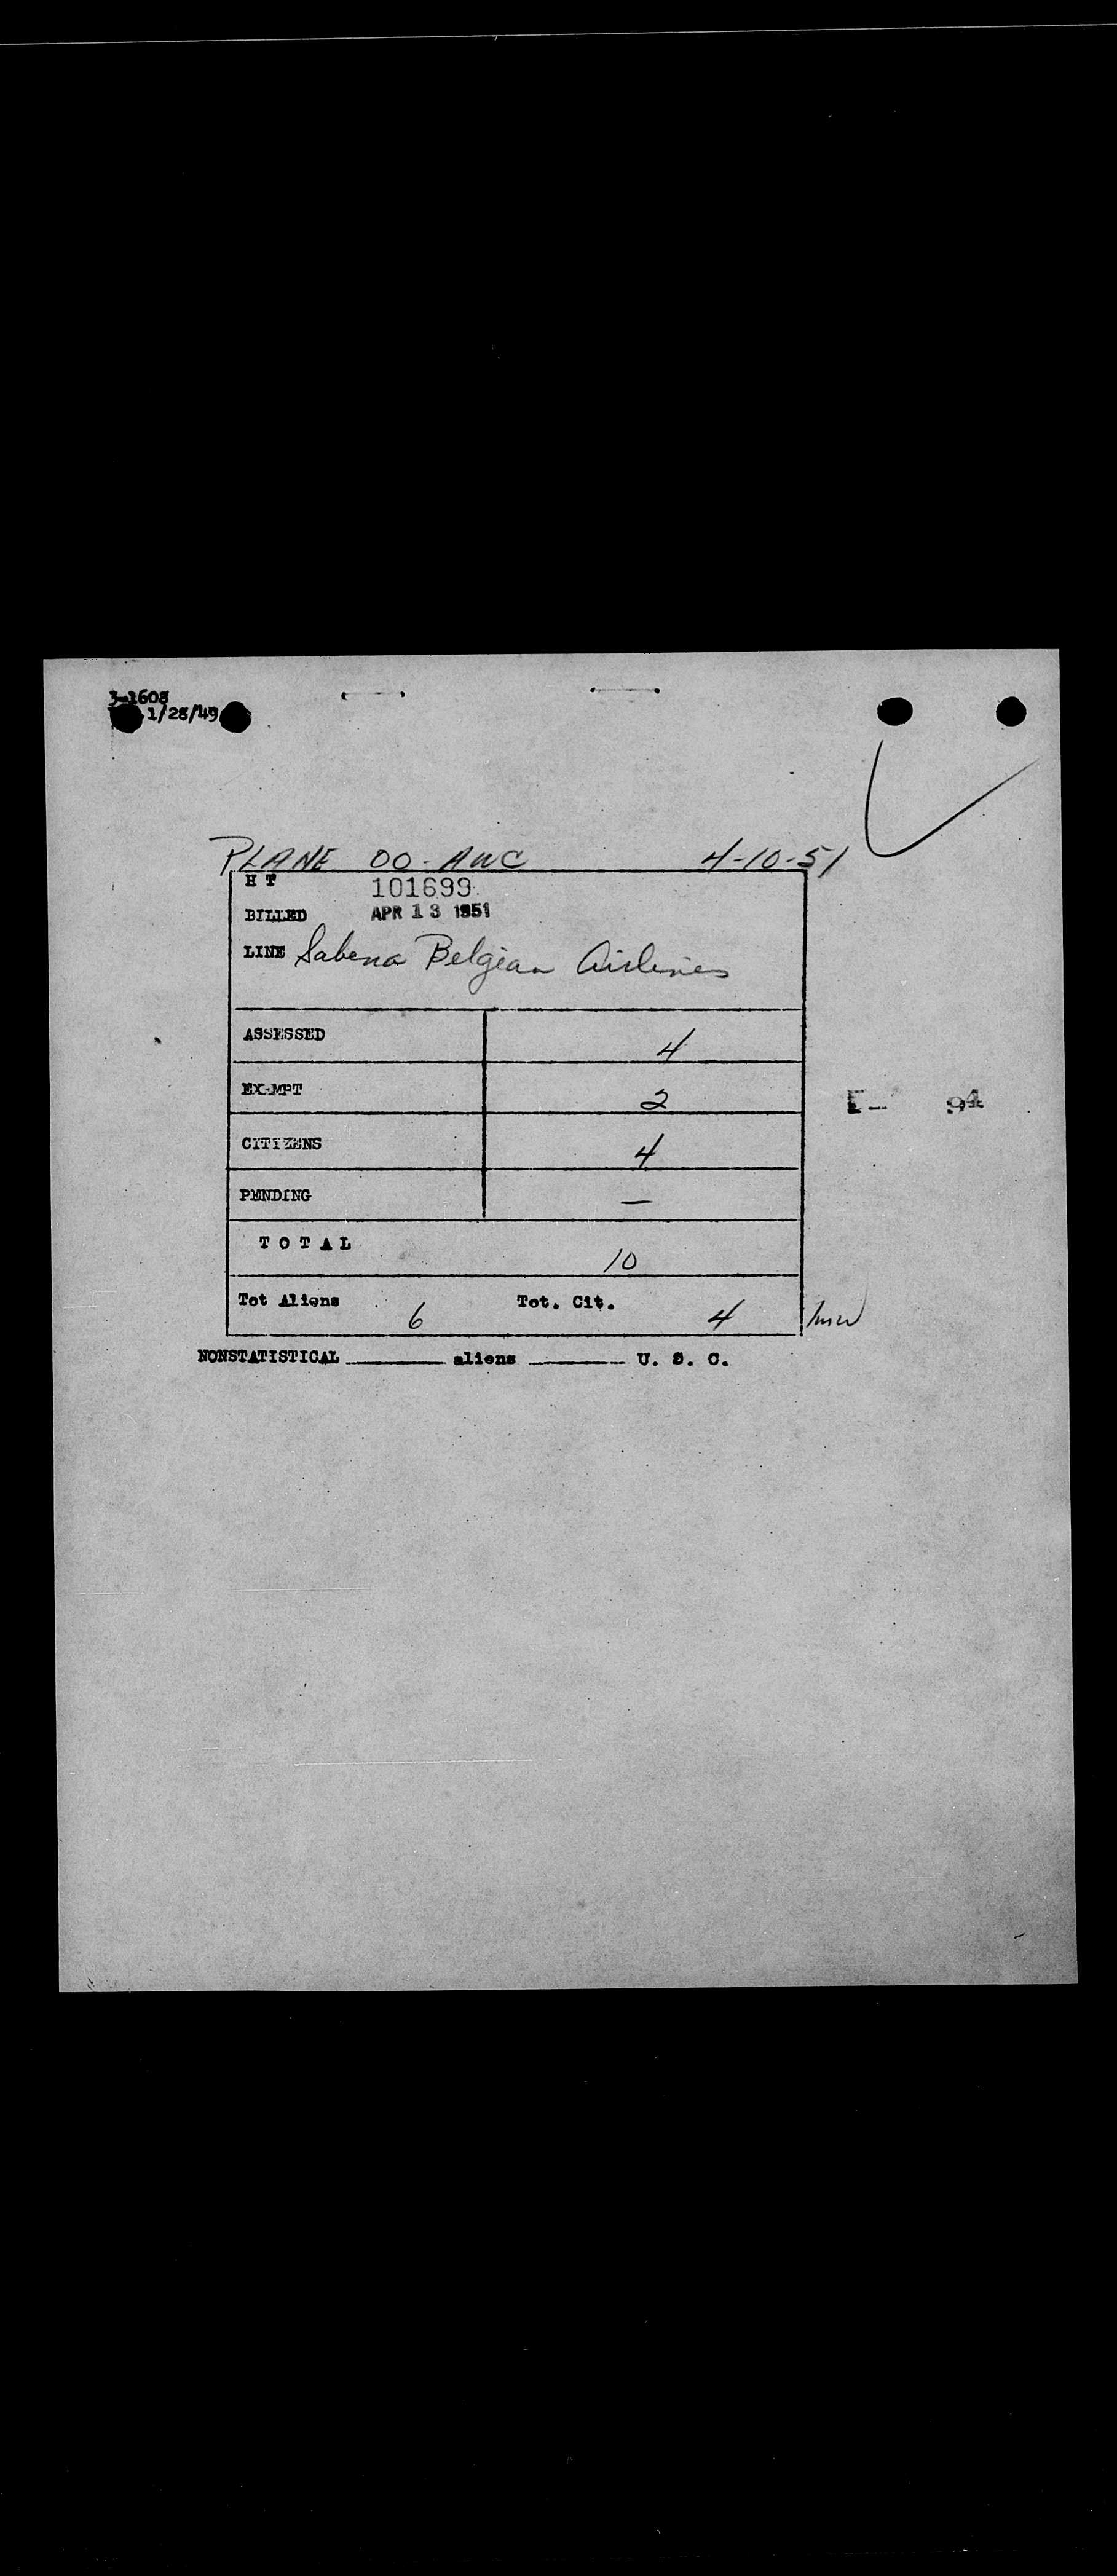 3-1608
1/28/49
PLANE OO-AWC 4-10-51
H T 101699
BILLED APR 13 1951
LINE Sabena Belgian Airlines
ASSESSED 4
EXEMPT 2
CITIZENS 4
PENDING —
TOTAL 10
Tot Aliens 6 Tot. Cit. 4
NONSTATISTICAL ________ aliens ________ U. S. C.
94